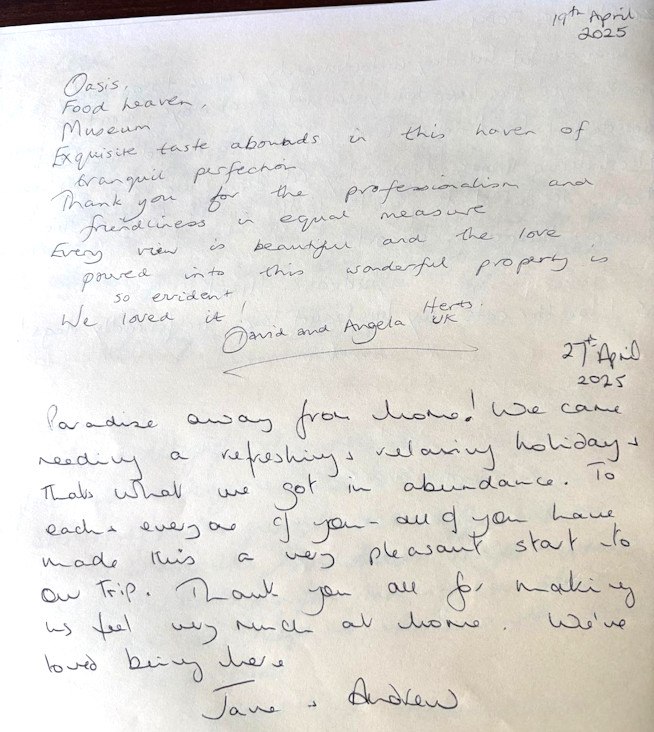 19th April
2025
Oasis.
Food heaven.
Museum
Exquisite taste abounds in this haven of
tranquil perfection
Thank you for the professionalism and
friendliness in equal measure
Every view is beautiful and the love
poured into this wonderful property is
so evident
We loved it!
David and Angela Herts.
UK
27th April
2025
Paradise away from home! We came
needing a refreshing & relaxing holiday &
thats what we got in abundance. To
each & everyone of you - all of you have
made this a very pleasant start to
our trip. Thank you all for making
us feel very much at home. We've
loved being here
Jane & Andrew